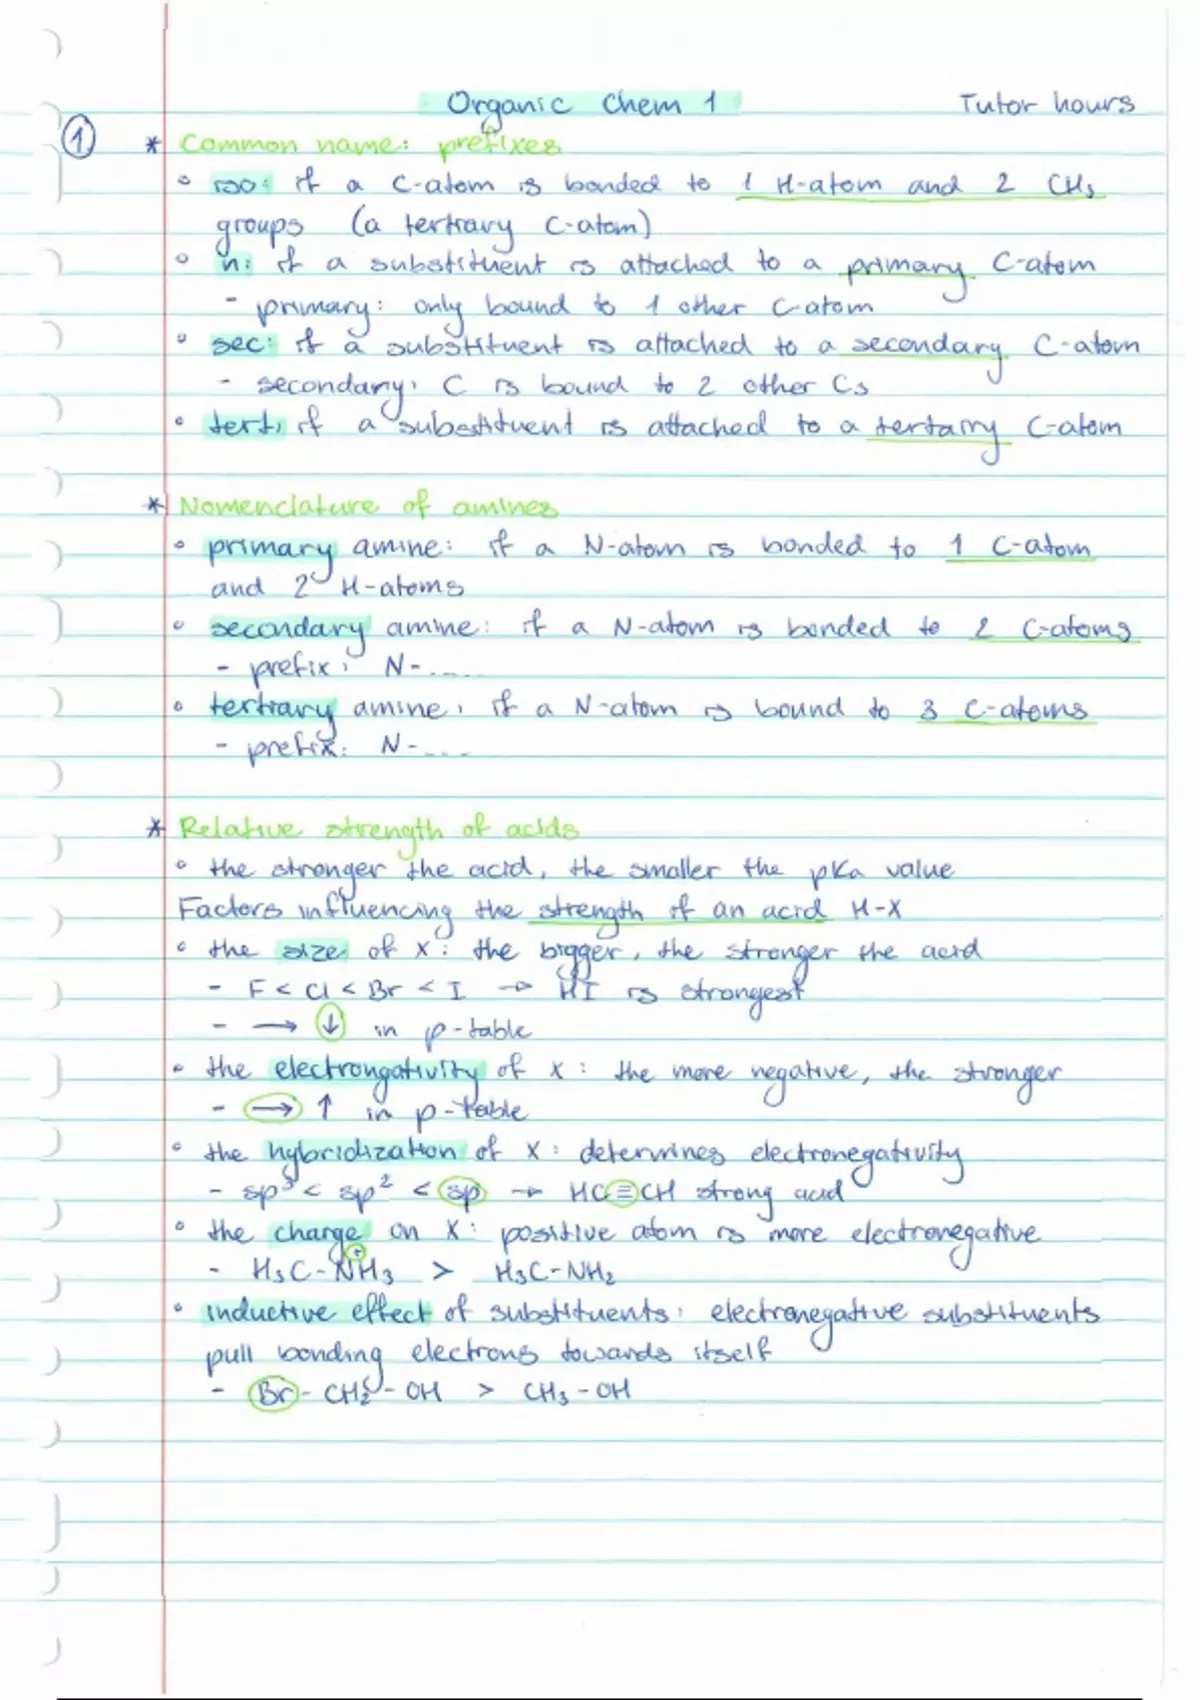 Organic Chem 1 Tutor hours
1 * Common name: prefixes
◦ iso: if a C-atom is bonded to 1 H-atom and 2 CH₃
groups (a tertiary C-atom)
◦ n: if a substituent is attached to a primary C-atom
- primary: only bound to 1 other C-atom
◦ sec: if a substituent is attached to a secondary C-atom
- secondary: C is bound to 2 other Cs
◦ tert: if a substituent is attached to a tertairy C-atom
* Nomenclature of amines
◦ primary amine: if a N-atom is bonded to 1 C-atom
and 2 H-atoms
◦ secondary amine: if a N-atom is bonded to 2 C-atoms
- prefix: N-....
◦ tertiary amine: if a N-atom is bound to 3 C-atoms
- prefix: N-....
* Relative strength of acids
◦ the stronger the acid, the smaller the pKa value
Factors influencing the strength of an acid H-X
◦ the size of X: the bigger, the stronger the acid
- F < Cl < Br < I → HI is strongest
- → ↓ in p-table
◦ the electrongativity of X: the more negative, the stronger
- → ↑ in p-table
◦ the hybridization of X: determines electronegativity
- sp³ < sp² < sp → HC≡CH strong acid
◦ the charge on X: positive atom is more electronegative
- H₃C-N⁺H₃ > H₃C-NH₂
◦ inductive effect of substituents: electronegative substituents
pull bonding electrons towards itself
- Br-CH₂-OH > CH₃-OH